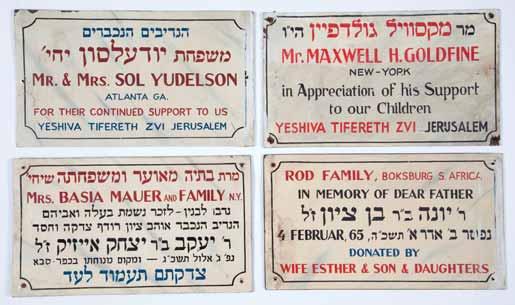 הנדיבים הנכבדים
משפחת יודעלסון יחי'
MR. & MRS. SOL YUDELSON
ATLANTA GA.
FOR THEIR CONTINUED SUPPORT TO US
YESHIVA TIFERETH ZVI JERUSALEM
מר מקסוויל גולדפיין הי"ו
Mr. MAXWELL H. GOLDFINE
NEW-YORK
in Appreciation of his Support
to our Children
YESHIVA TIFERETH ZVI JERUSALEM
מרת בתיה מאוער ומשפחתה שיחי'
MRS. BASIA MAUER AND FAMILY N.Y.
נדבו לבנין - לזכר נשמת בעלה ואביהם
הנדיב הנכבד אוהב ציון רודף צדקה וחסד
ר' יעקב ב"ר יצחק אייזיק ז"ל
נפ' ג' אלול תשכ"ג — ומקום מנוחתו בכפר-סבא
צדקתם תעמוד לעד
ROD FAMILY, BOKSBURG S. AFRICA
IN MEMORY OF DEAR FATHER
ר' יונה ב"ר בן ציון ז"ל
4 FEBRUAR, 65, נפטר ב' אדר א' תשכ"ה
DONATED BY
WIFE ESTHER & SON & DAUGHTERS